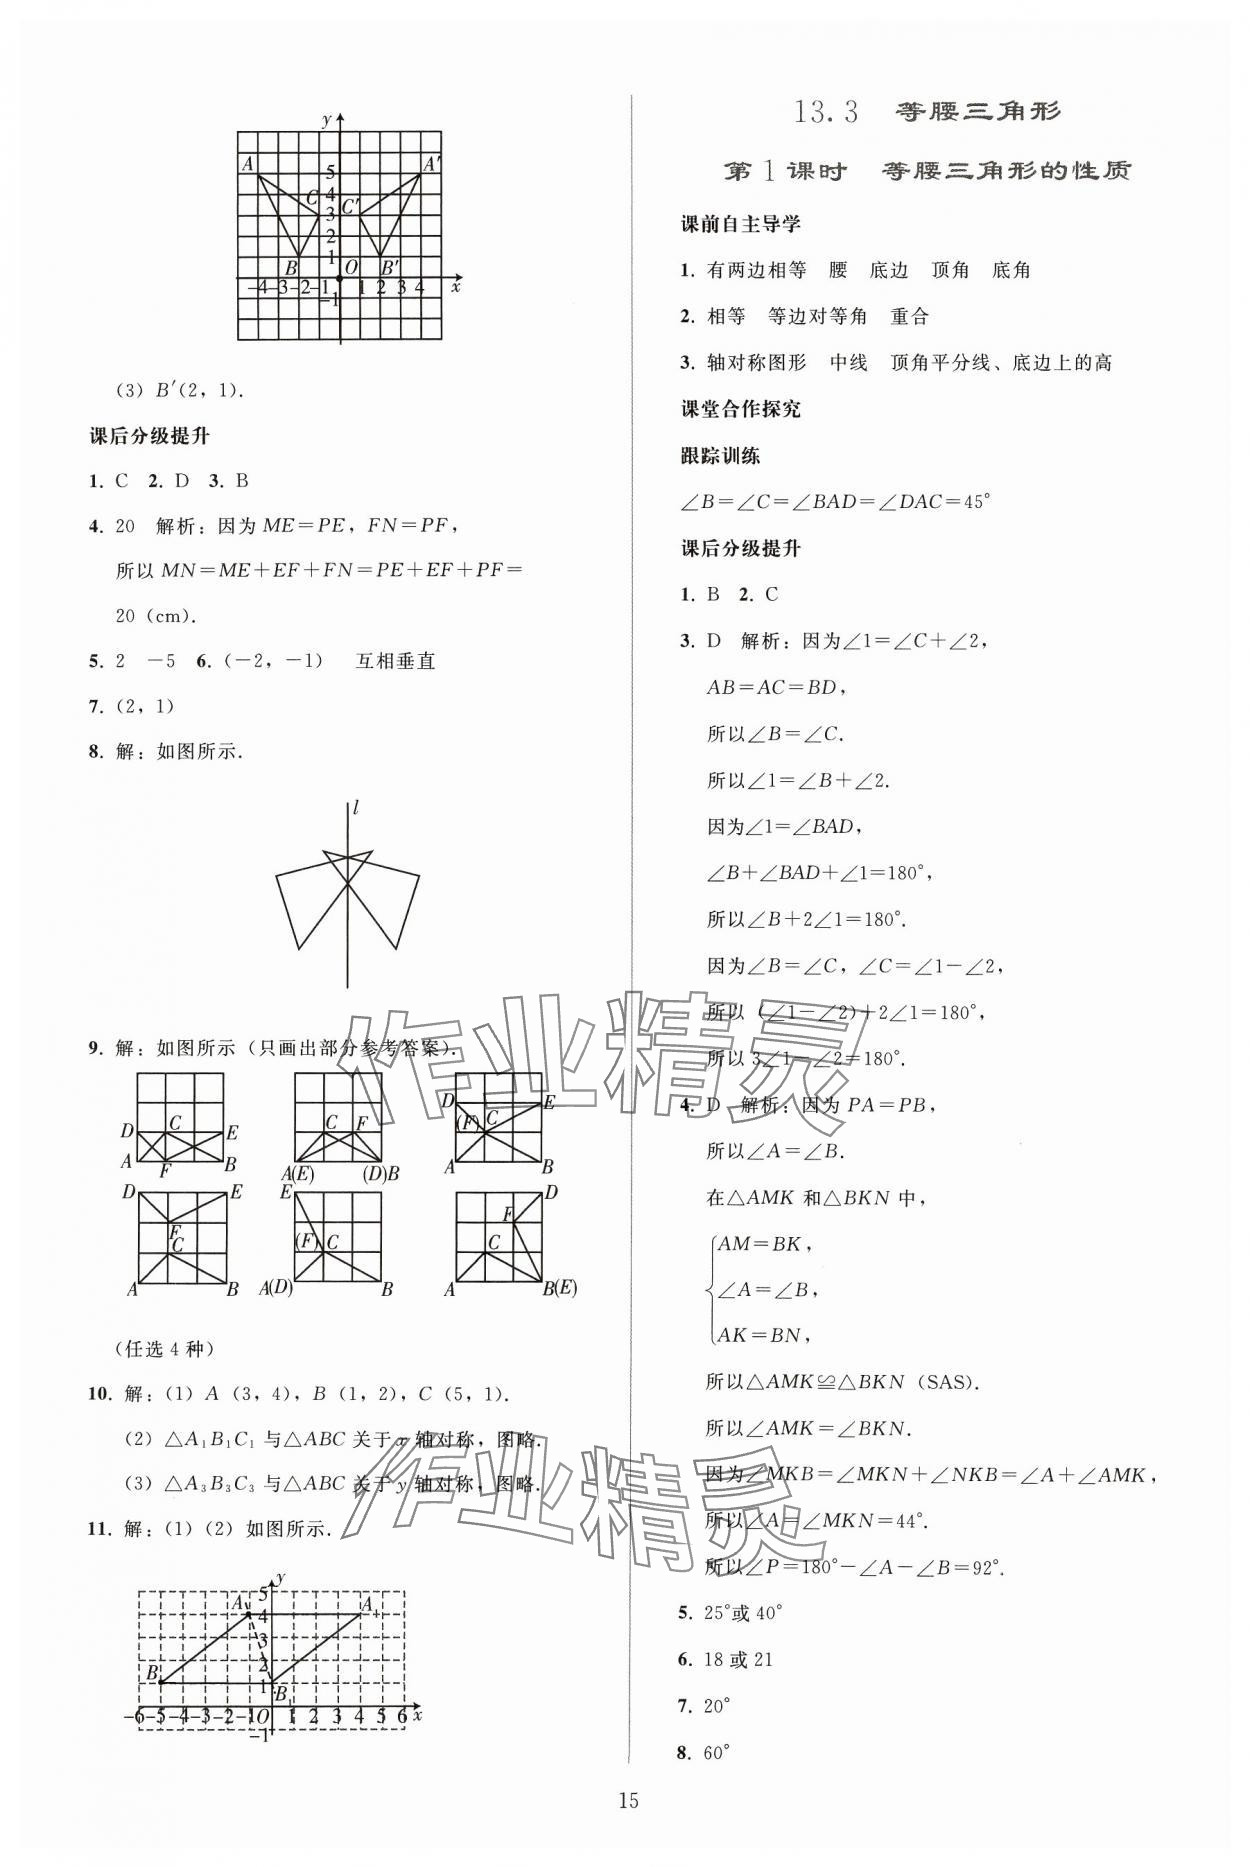 y
A
A′
5
4
C
C′
3
2
1
B
O
B′
-4 -3 -2 -1
1 2 3 4
x
-1
(3) B′(2，1).
课后分级提升
1. C 2. D 3. B
4. 20 解析：因为 ME=PE，FN=PF，
所以 MN=ME+EF+FN=PE+EF+PF=
20 (cm).
5. 2 -5 6. (-2，-1) 互相垂直
7. (2，1)
8. 解：如图所示.
l
9. 解：如图所示（只画出部分参考答案）.
D C E
A F B
C F
A(E) (D)B
D E
(F) C
A B
D E
F
C
A B
E
(F) C
A(D) B
D
F
C
A B(E)
（任选 4 种）
10. 解：(1) A (3，4)，B (1，2)，C (5，1).
(2) △A₁B₁C₁ 与△ABC 关于 x 轴对称，图略.
(3) △A₃B₃C₃ 与△ABC 关于 y 轴对称，图略.
11. 解：(1) (2) 如图所示.
y
5
A 4 A₁
3
2
B 1 B₁
-6 -5 -4 -3 -2 -1 O 1 2 3 4 5 6 x
-1
13.3 等腰三角形
第 1 课时 等腰三角形的性质
课前自主导学
1. 有两边相等 腰 底边 顶角 底角
2. 相等 等边对等角 重合
3. 轴对称图形 中线 顶角平分线、底边上的高
课堂合作探究
跟踪训练
∠B=∠C=∠BAD=∠DAC=45°
课后分级提升
1. B 2. C
3. D 解析：因为∠1=∠C+∠2，
AB=AC=BD，
所以∠B=∠C.
所以∠1=∠B+∠2.
因为∠1=∠BAD，
∠B+∠BAD+∠1=180°，
所以∠B+2∠1=180°.
因为∠B=∠C，∠C=∠1-∠2，
所以 (∠1-∠2)+2∠1=180°，
所以 3∠1-∠2=180°.
4. D 解析：因为 PA=PB，
所以∠A=∠B.
在△AMK 和△BKN 中，
AM=BK，
∠A=∠B，
AK=BN，
所以△AMK≌△BKN (SAS).
所以∠AMK=∠BKN.
因为∠MKB=∠MKN+∠NKB=∠A+∠AMK，
所以∠A=∠MKN=44°.
所以∠P=180°-∠A-∠B=92°.
5. 25°或 40°
6. 18 或 21
7. 20°
8. 60°
15
作业精灵
作业精灵